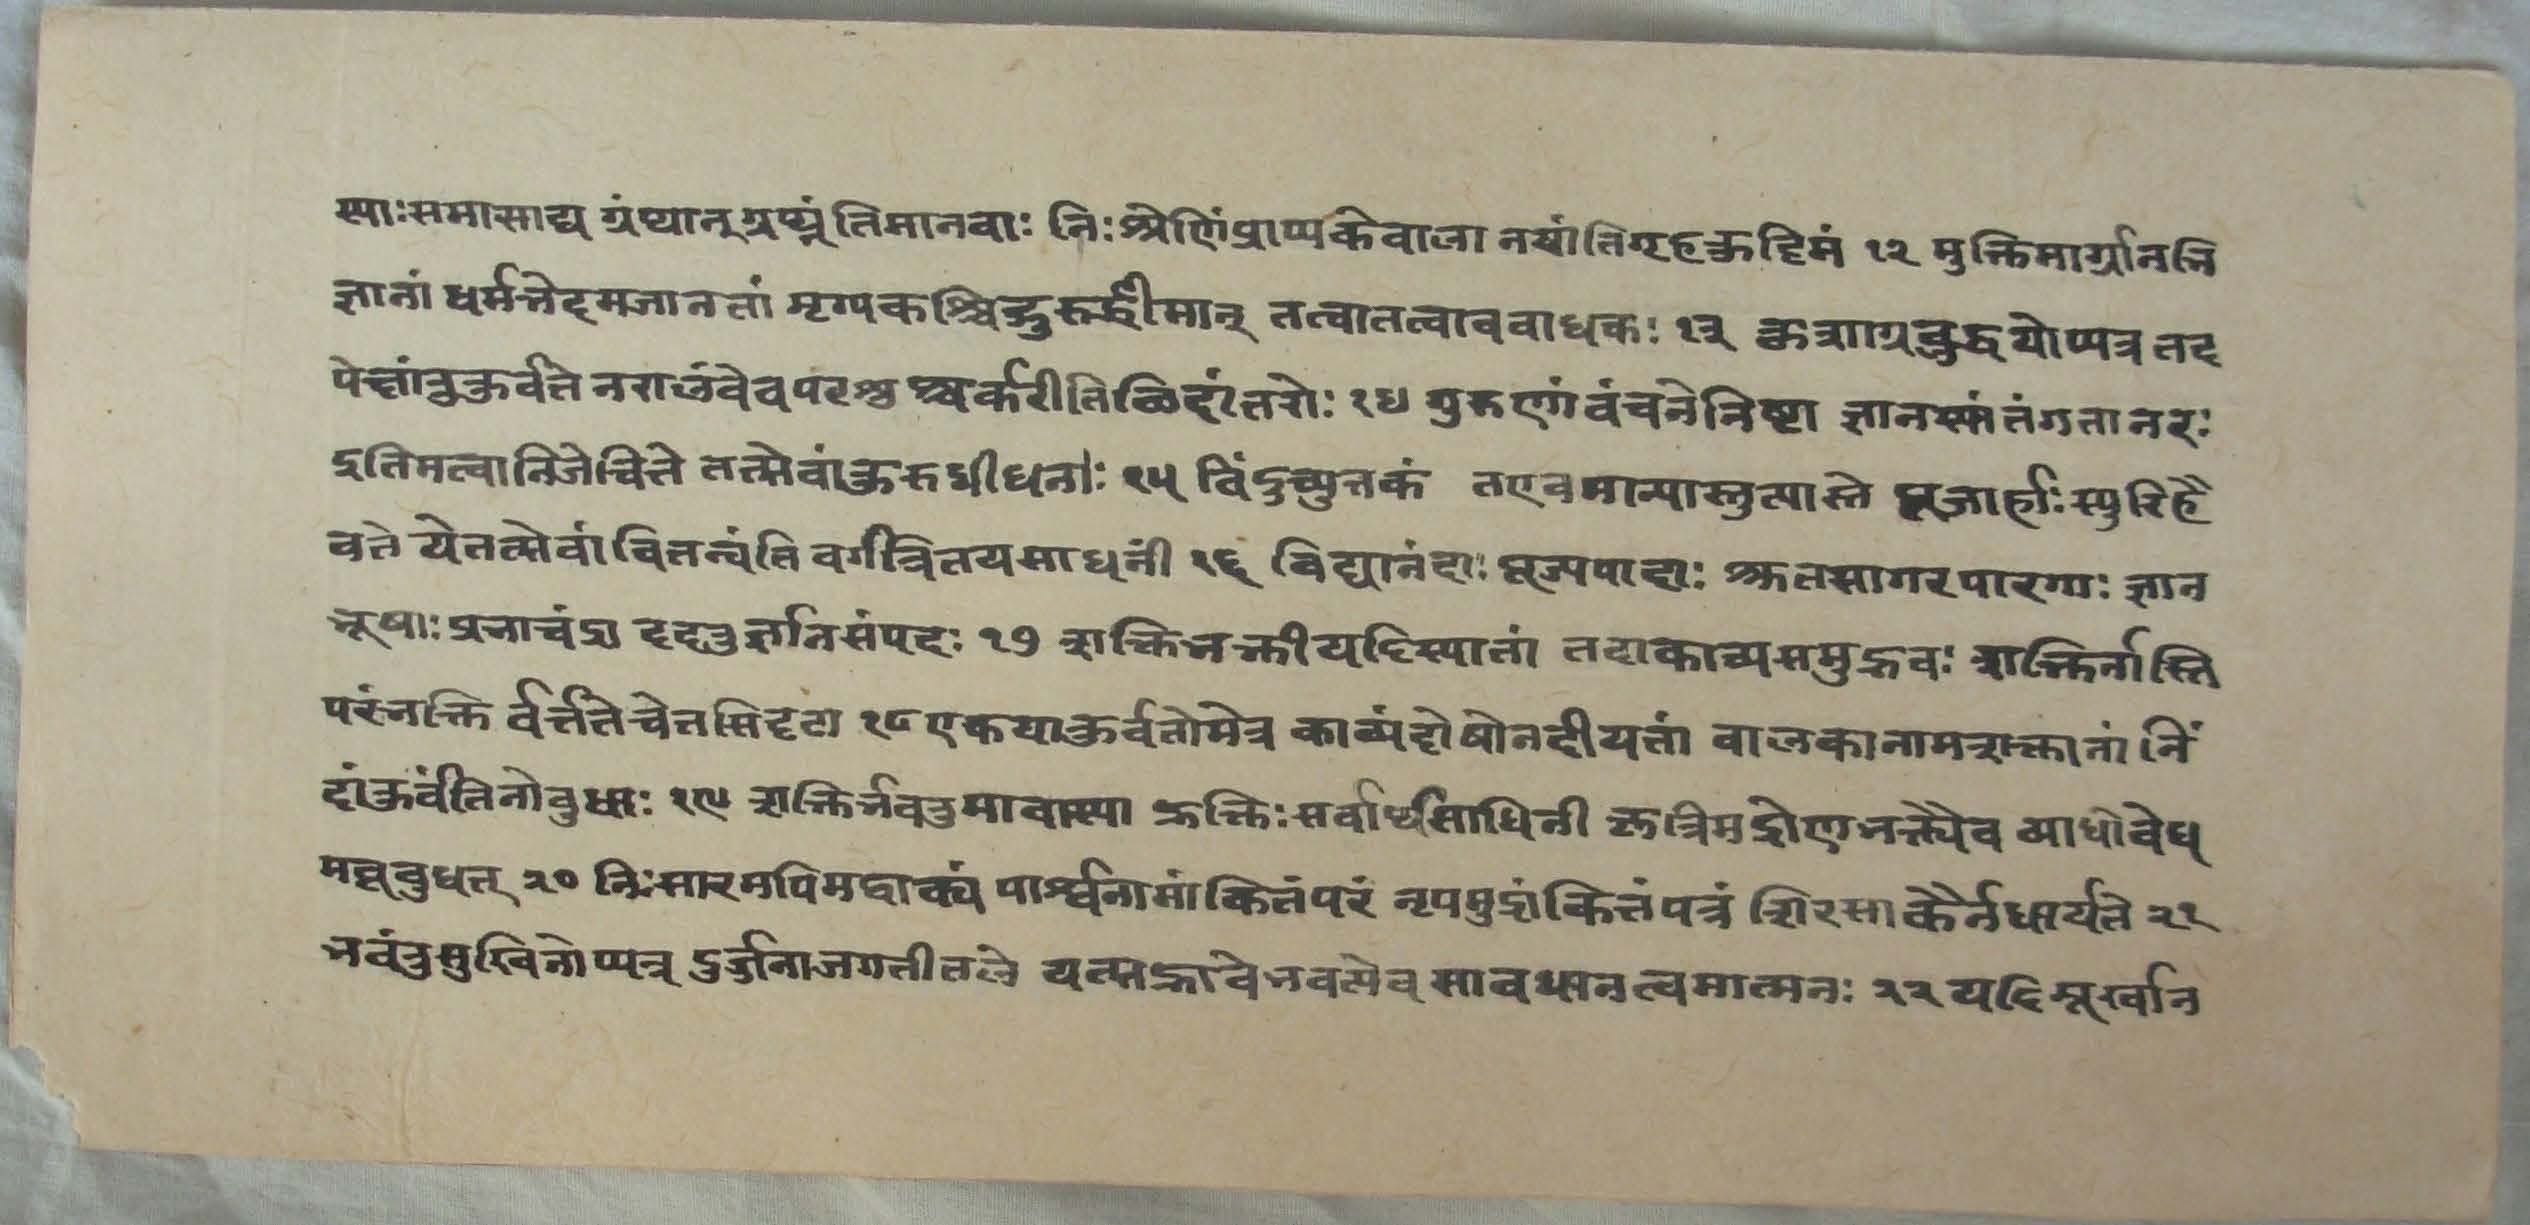 स्याः समासाद्य ग्रंथान् ग्रथ्नंति मानवाः निःश्रेणिं प्राप्य के वाला न यांति गृहकुट्टिमं १२ मुक्तिमार्गानभि
ज्ञानां धर्मभेदमजानतां मृग्य कश्चिद्गुरुर्द्धीमान् तत्वातत्वाववाधकः १३ कुशाग्रवुद्धयोप्यत्र तद
पेक्षां कुर्वते नरा लंवेव परशु श्चर्करीति छिदां तरोः १४ गुरुणां वंचने निष्टा ज्ञानस्यांतं गता नरः
इति मत्वा निजे चित्ते तत्सेवां कुरु भी धनाः १५ विंदुच्युतकं त एव मान्यास्तुत्यास्ते पूजार्हाः स्युरिहै
वते ये तत्सेवां वितन्वंति वर्गत्रितयसाधनीं १६ विद्यानंदाः पूज्यपादाः श्रुतसागरपारगाः ज्ञान
भूषाः प्रभाचंद्रा ददतु ज्ञानसंपदः १७ शक्तिभक्ती यदि स्यातां तदा काव्यसमुद्भवः शक्तिर्नास्ति
परं भक्ति र्वर्त्तते चेतसि दृढा १८ एकया कुर्वतो मेत्र काव्यं दोषो न दीयतां वालकानामशक्तानां निं
दां कुर्वंति नो वुधाः १९ शक्तिर्भवतु मावास्या भक्तिः सर्वार्थसाधिनी कृत्रिमद्रोण भक्त्यैव व्याधो वेध
मवूवुधत् २० निःसारमपि मद्वाक्यं पार्श्वनामांकितं परं नृपमुद्रांकितं पत्रं शिरसा कैर्न धार्यते २१
भवंतु सुखिनोप्यत्र दुर्ज्जना जगतीतले यत्सद्भावे भवत्येव सावधानत्वमात्मनः २२ यदि मूर्खान